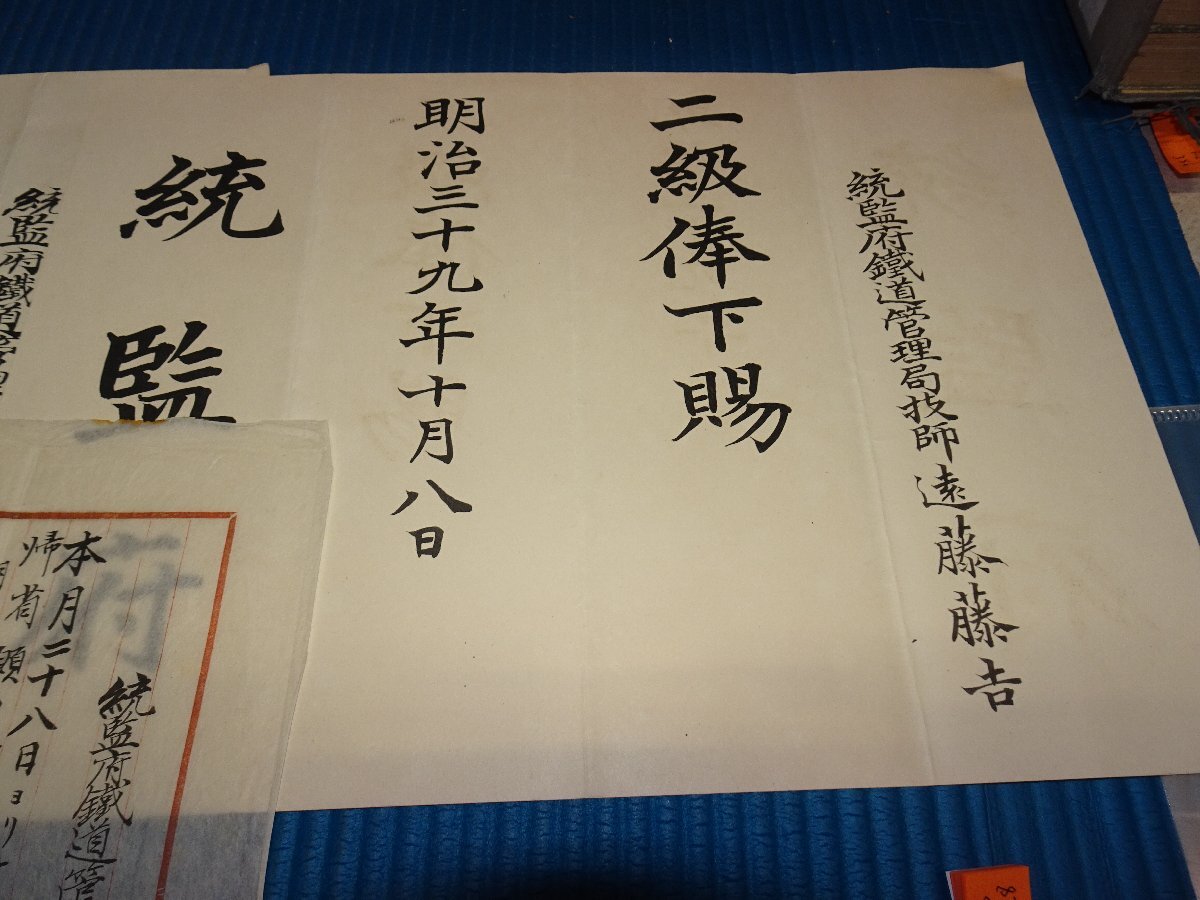 統監府鐵道管理局技師遠藤藤吉
二級俸下賜
明治三十九年十月八日
統監府
統監府鐵道管
統監府鐵道管
本月二十八日ヨリ
帰省願